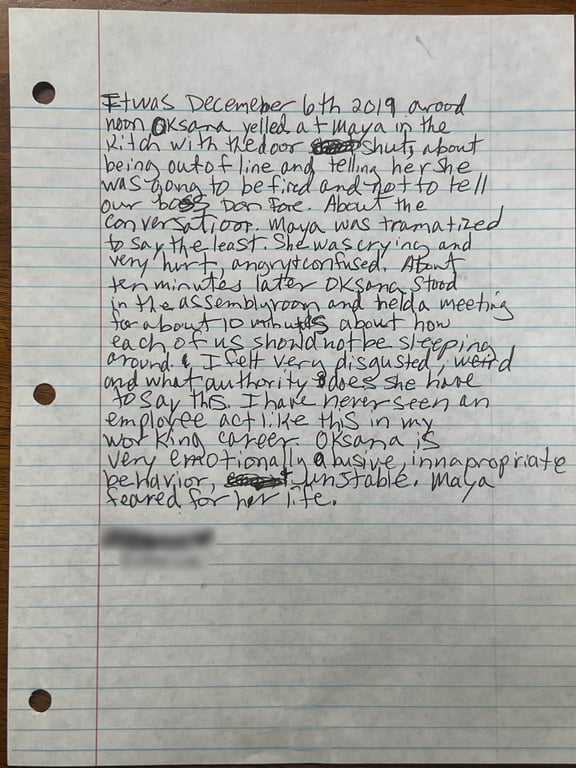 It was Decemeber 6th 2019 arood
noon Oksana yelled at Maya in the
kitch with the door shuts about
being out of line and telling her she
was going to be fired and not to tell
our boss Don Fore. About the
conversatioon. Maya was tramatized
to say the least she was crying and
very hurt, angry + confused. About
ten minutes later Oksana stood
in the assembly room and held a meeting
for about 10 minutes about how
each of us should not be sleeping
around. I felt very disgusted, weird
and what authority does she have
to say this. I have never seen an
employee act like this in my
working career. Oksana is
very emotionally abusive, innapropriate
behavior, unstable. Maya
feared for her life.